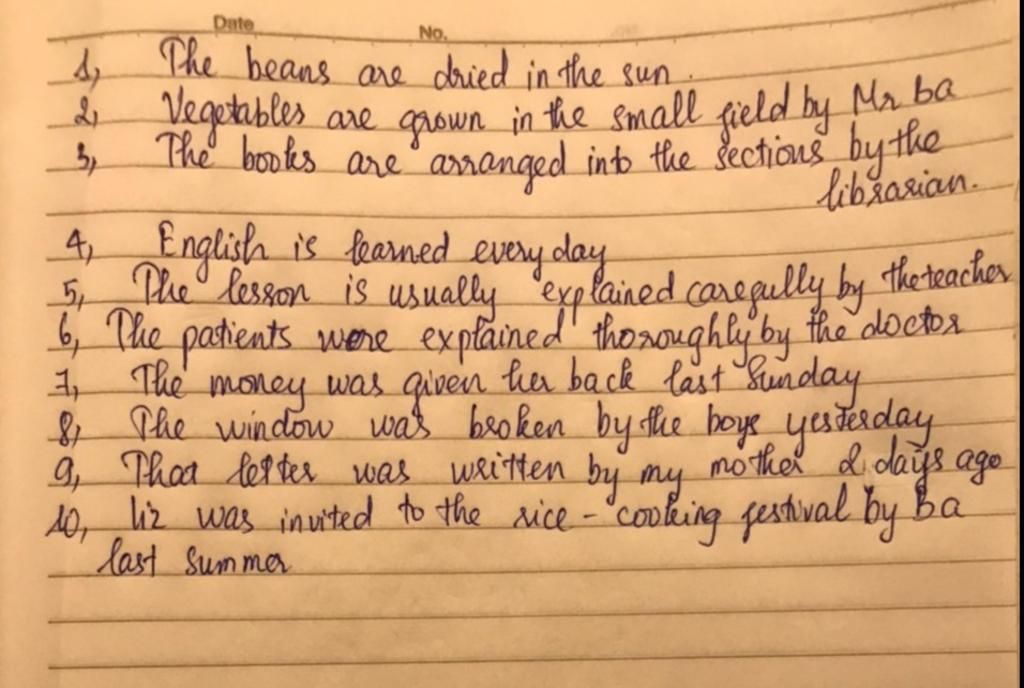 Date No.
1, The beans are dried in the sun.
2, Vegetables are grown in the small field by Mr Ba
3, The books are arranged into the sections by the
librarian.
4, English is learned every day
5, The lesson is usually explained carefully by the teacher
6, The patients were explained thoroughly by the doctor
7, The money was given her back last Sunday
8, The window was broken by the boys yesterday
9, That letter was written by my mother 2 days ago
10, Liz was invited to the rice - cooking festival by Ba
last summer